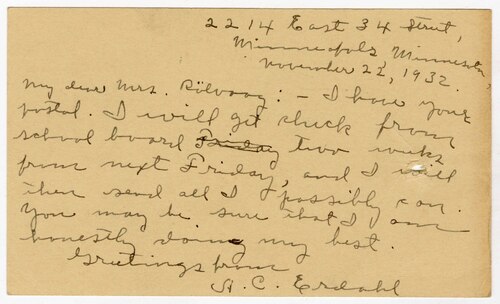 2214 East 34 Street,
Minneapolis Minnesota
November 22, 1932.
My dear Mrs. Rölvaag: – I have your
postal. I will get check from
school board Friday two weeks
from next Friday, and I will
then send all I possibly can.
You may be sure that I am
honestly doing my best.
Greetings from
A. C. Erdahl